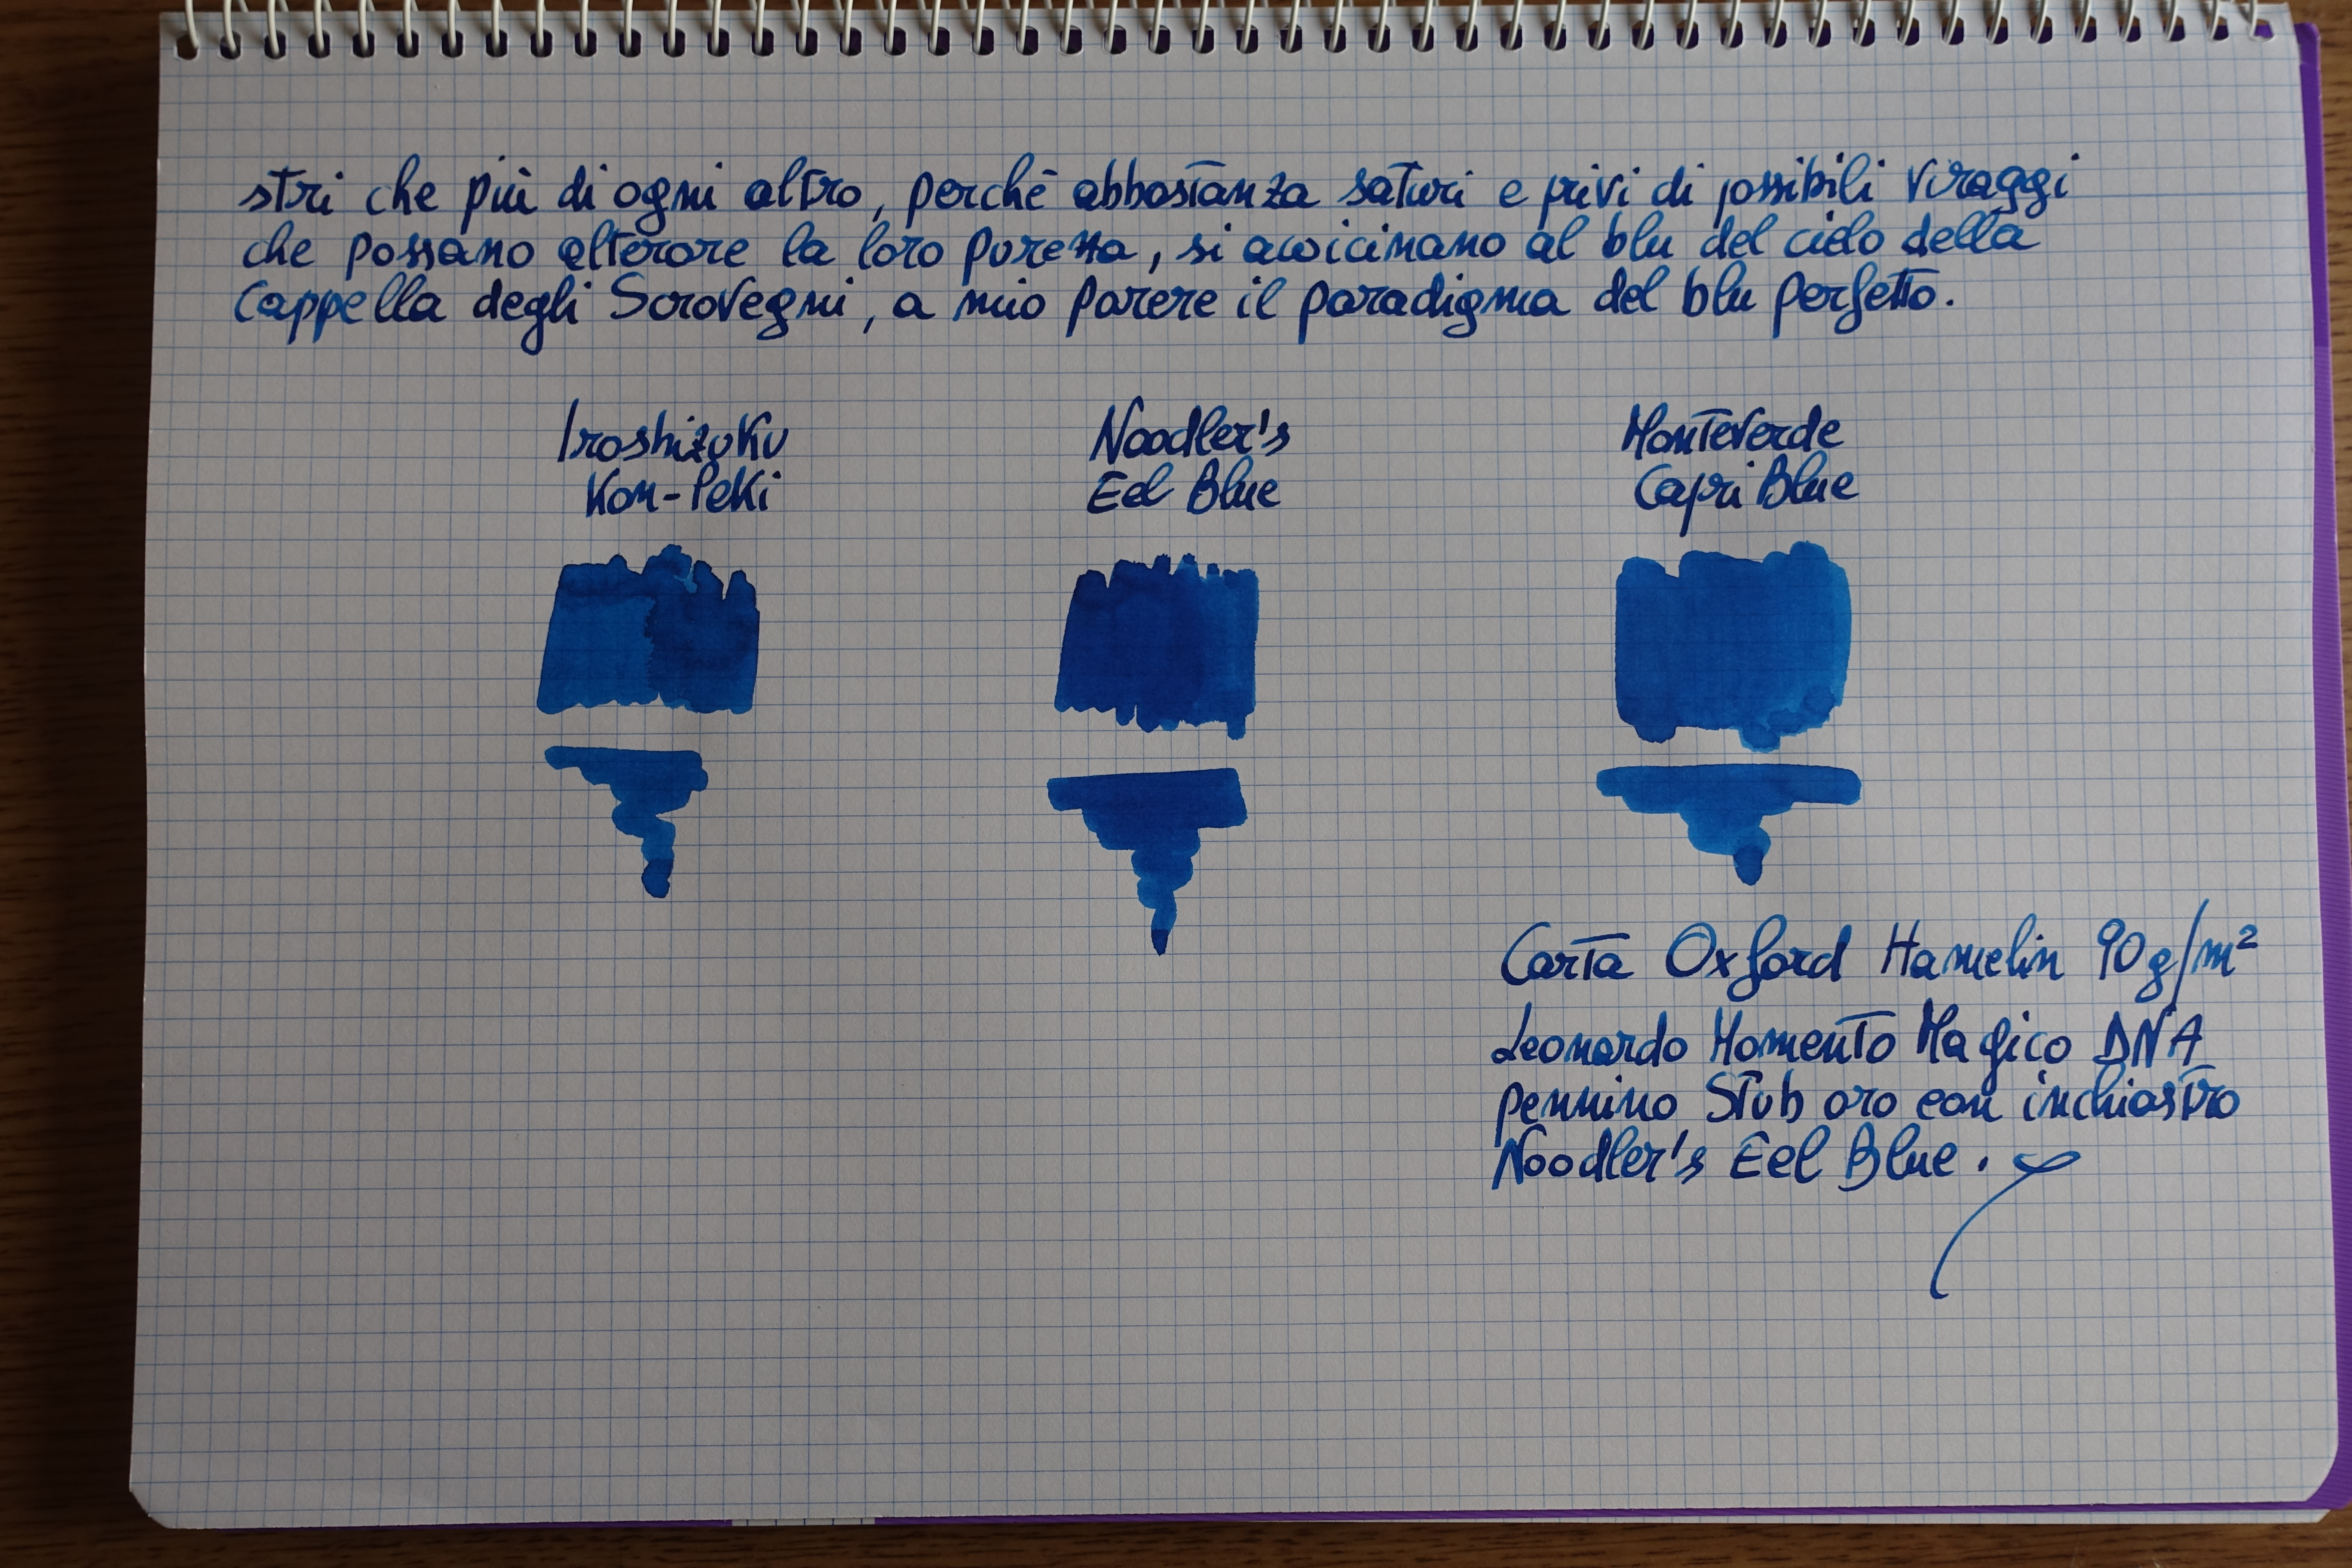 stri che più di ogni altro, perchè abbastanza saturi e privi di possibili viraggi
che possano alterare la loro purezza, si avvicinano al blu del cielo della
Cappella degli Scrovegni, a mio parere il paradigma del blu perfetto.
Iroshizuku
Kon-Peki
Noodler's
Eel Blue
Monteverde
Capri Blue
Carta Oxford Hamelin 90g/m²
Leonardo Momento Magico DNA
pennino Stub oro con inchiostro
Noodler's Eel Blue.